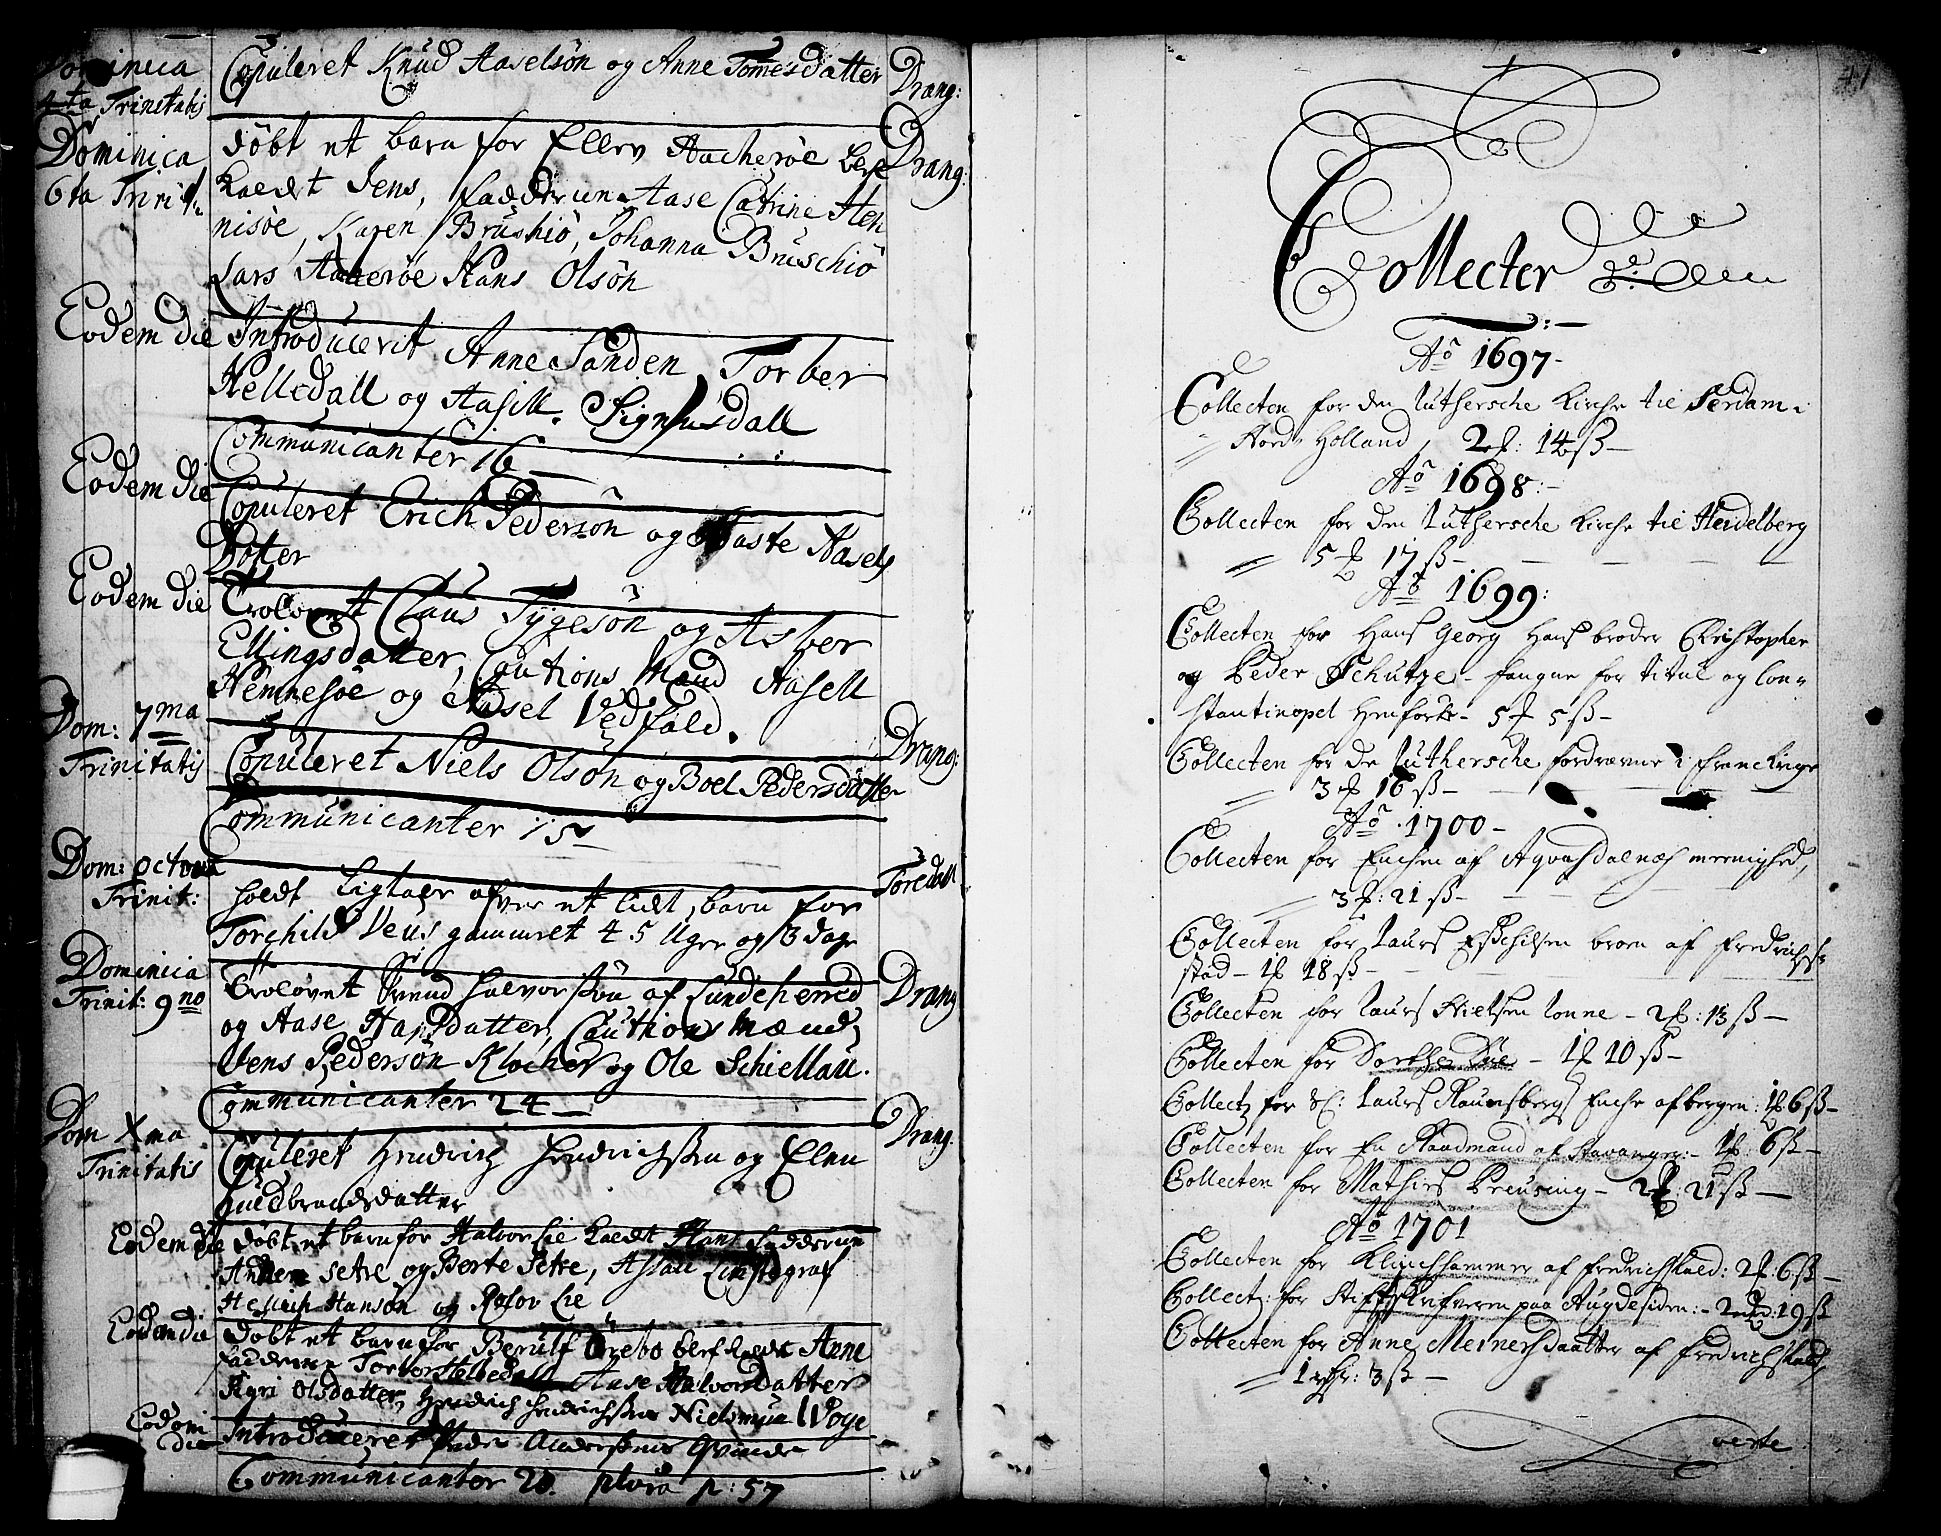 Dominica
4ta Trinitatis
Copuleret Knud Aaselsön og Anne Tomesdatter
Drang:
Dominica
6ta Trinit:
Döbt et barn for Ellev Aacheröe
Drang:
kaldt Jens, Fadderne Aase Catrine Hen
nisöe, Karen Bruschiö, Johanna Bruschiö
Lars Aacheröe Hans Olsön
Eodem die
Introduceret Anne Sanden, Torber
Helledall og Aasill Signusdall
Communicanter 16
Eodem die
Copuleret Erich Pedersön og Aaste Aasels
Dotter
Eodem die
Trolovet Claus Tygesön og Asber
Ellingsdatter, Cautions Mænd Aasell
Hennesöe og Aasel Vedfald.
Dom: 7ma
Trinitatis
Copuleret Niels Olsön og Boel Pedersdatter
Drang:
Communicanter 15
Dom: octava
Trinit:
holdt Ligtale ofver et lidt barn for
Toredall
Torchild Veus gammelt 4 5 Uger og 3 dage
Dominica
Trinit: 9no
Trolovet Svend Halvorsön af Sundeherred
Drang
og Aase Datter, Cautions Mænd
Jens Pedersön Klocher og Ole Schiellau.
Communicanter 24
Dom Xma
Trinitatis
Copuleret Hendrich Hendrichsen og Ellen
Drang:
Guldbrandsdatter
Eodem die
döbt et barn for Halvor Lie kaldt Hans Fadderne
Anders Setre og Berte Setre, Aslau
Hansön og Rolov Lie
Eodem die
döbt et barn for Berulf Örebo kaldt Anne
Fadderne Torbor Helledall Aase Halvorsdatter
Sigri Olsdatter, Hendrich Hendrichsen Niels Woye
Eodem
die
Introduceret Peder Andersens Qvinde
Communicanter 20. plura p: 57
Collecter
Ao 1697
Collecten for den Luthersche Kirche til Serdam i
Nord Holland, 2 : 14 ß
Ao 1698:
Collecten for den Luthersche Kirche til Heidelberg
5 17 ß
Ao 1699:
Collecten for Hans Georg Hans broder Christopher
og Peder Schutze fangne for og Con
stantinopel henförte 5 5 ß
Collecten for de Luthersche fordrevne i Franckrige
3 16 ß
Ao 1700
Collecten for Enchen af Agvasdalnes meenighed,
3 : 21 ß
Collecten for Laurs Eschilsen broen af Fredrichs
stad 1 18 ß
Collecten for Laurs Nielsen Lonne 2 : 13 ß
Collecten for Dorthe 1 10 ß
Collect for Laurs Raunsbergs Enche af bergen: 1 6 ß
Collecten for En Raadmand af Stavanger: 1 6 ß
Collecten for Mathies Preusing 2 : 21 ß
Ao 1701
Collecten for Klinchhammer af Fredrichshald: 2 6 ß
Collect: for Stiftskrifveren paa Augdesiden: 2 : 19 ß
Collecten for Anne Meinersdaatter af Fredrichshald
1 : 3 ß
verte